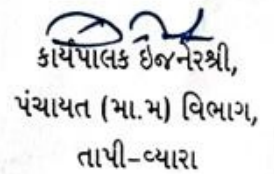 કાર્યપાલક ઇજનેરશ્રી,
પંચાયત (મા.મ) વિભાગ,
તાપી-વ્યારા